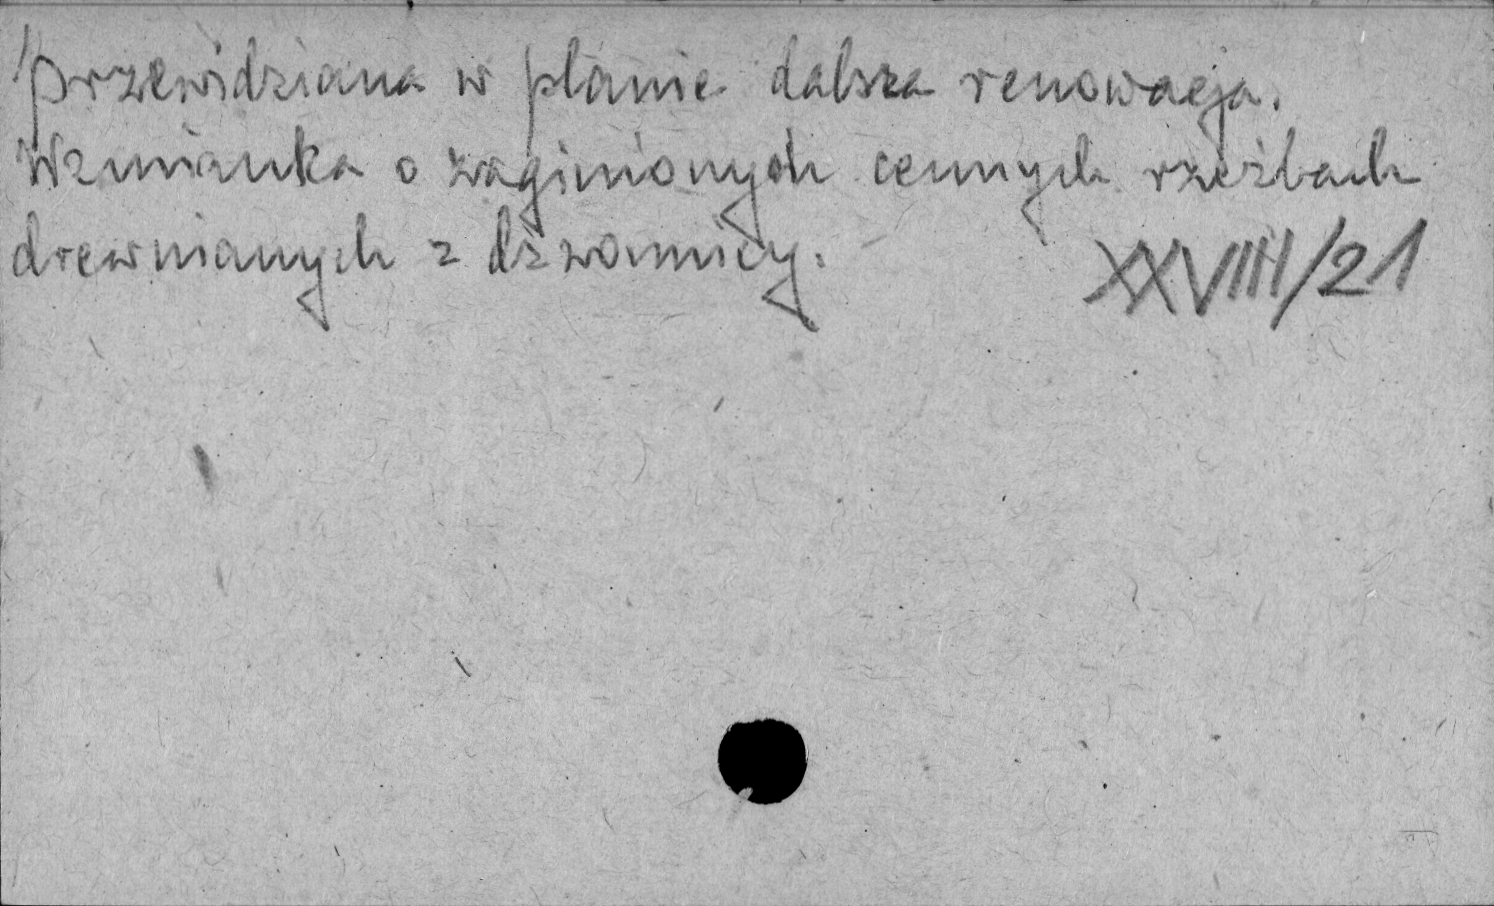 przewidziana w planie dalsza renowacja.
Wzmianka o zaginionych cennych rzeźbach
drewnianych z dzwonnicy.
XXVIII/21